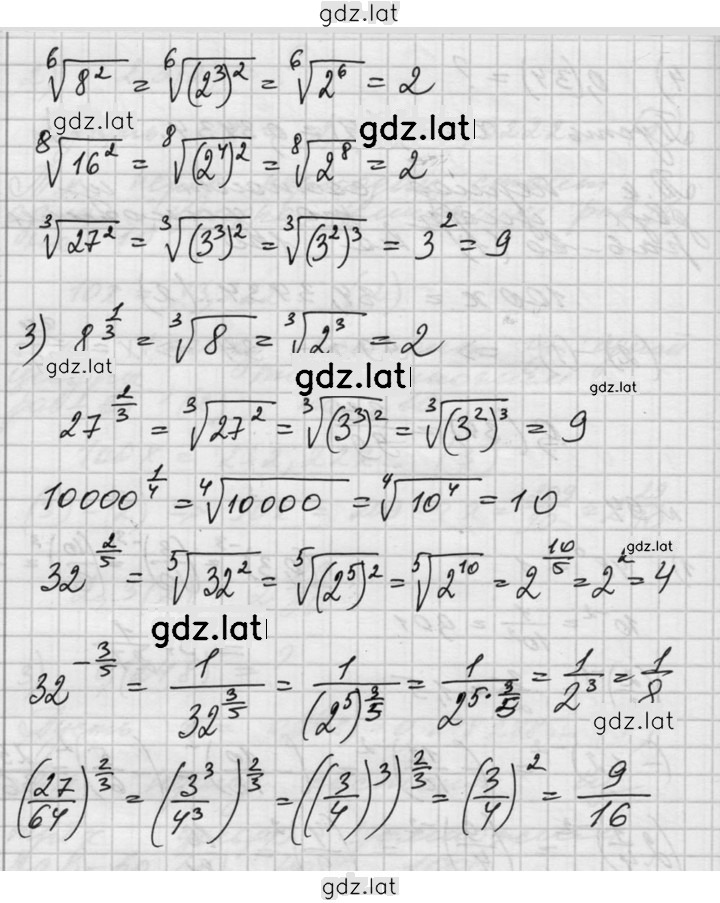 gdz.lat
⁶√8² = ⁶√(2³)² = ⁶√2⁶ = 2
gdz.lat
gdz.lat
⁸√16² = ⁸√(2⁴)² = ⁸√2⁸ = 2
³√27² = ³√(3³)² = ³√(3²)³ = 3² = 9
3) 8^(1/3) = ³√8 = ³√2³ = 2
gdz.lat
gdz.lat
gdz.lat
27^(2/3) = ³√27² = ³√(3³)² = ³√(3²)³ = 9
10000^(1/4) = ⁴√10000 = ⁴√10⁴ = 10
gdz.lat
32^(2/5) = ⁵√32² = ⁵√(2⁵)² = ⁵√2¹⁰ = 2^(10/5) = 2² = 4
gdz.lat
32^(-3/5) = 1/32^(3/5) = 1/(2⁵)^(3/5) = 1/2^(5·3/5) = 1/2³ = 1/8
gdz.lat
(27/64)^(2/3) = (3³/4³)^(2/3) = ((3/4)³)^(2/3) = (3/4)² = 9/16
gdz.lat